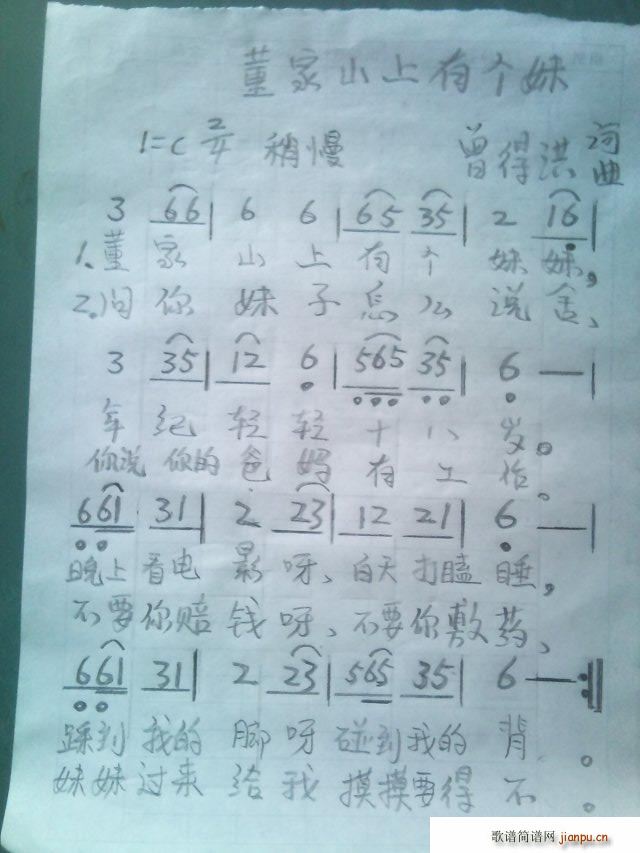 董家山上有个妹
1=C 2/4 稍慢 曾得洪 词曲
3 66 | 6 6 | 65 35 | 2 16 |
1.董家山上有个妹妹,
2.问你妹子怎么说舍、
3 35 | 12 6 | 565 35 | 6 — |
年纪轻轻十八岁。
你说你的爸妈有工作。
661 31 | 2 23 | 12 21 | 6 — |
晚上看电影呀、白天打瞌睡,
不要你赔钱呀、不要你敷药、
661 31 | 2 23 | 565 35 | 6 — :||
踩到我的脚呀碰到我的背。
妹妹过来给我摸摸要得不。
歌谱简谱网 jianpu.cn